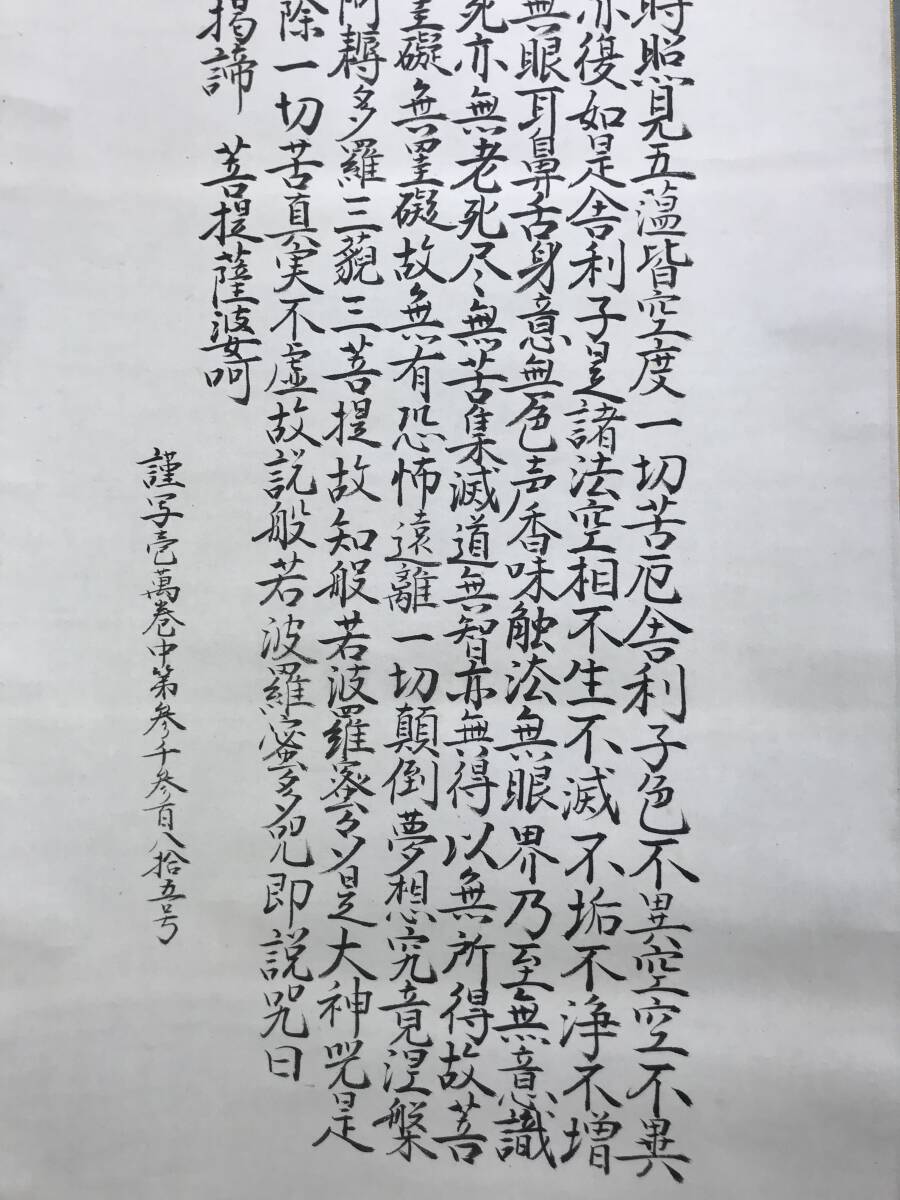 時照見五蘊皆空度一切苦厄舎利子色不異空空不異
亦復如是舎利子是諸法空相不生不滅不垢不浄不増
無眼耳鼻舌身意無色声香味触法無眼界乃至無意識
死亦無老死尽無苦集滅道無智亦無得以無所得故菩
罣礙無罣礙故無有恐怖遠離一切顛倒夢想究竟涅槃
阿耨多羅三藐三菩提故知般若波羅蜜多是大神咒是
除一切苦真実不虚故説般若波羅蜜多咒即説咒曰
揭諦 菩提薩婆訶
謹写壱萬巻中第參千參百八拾五号